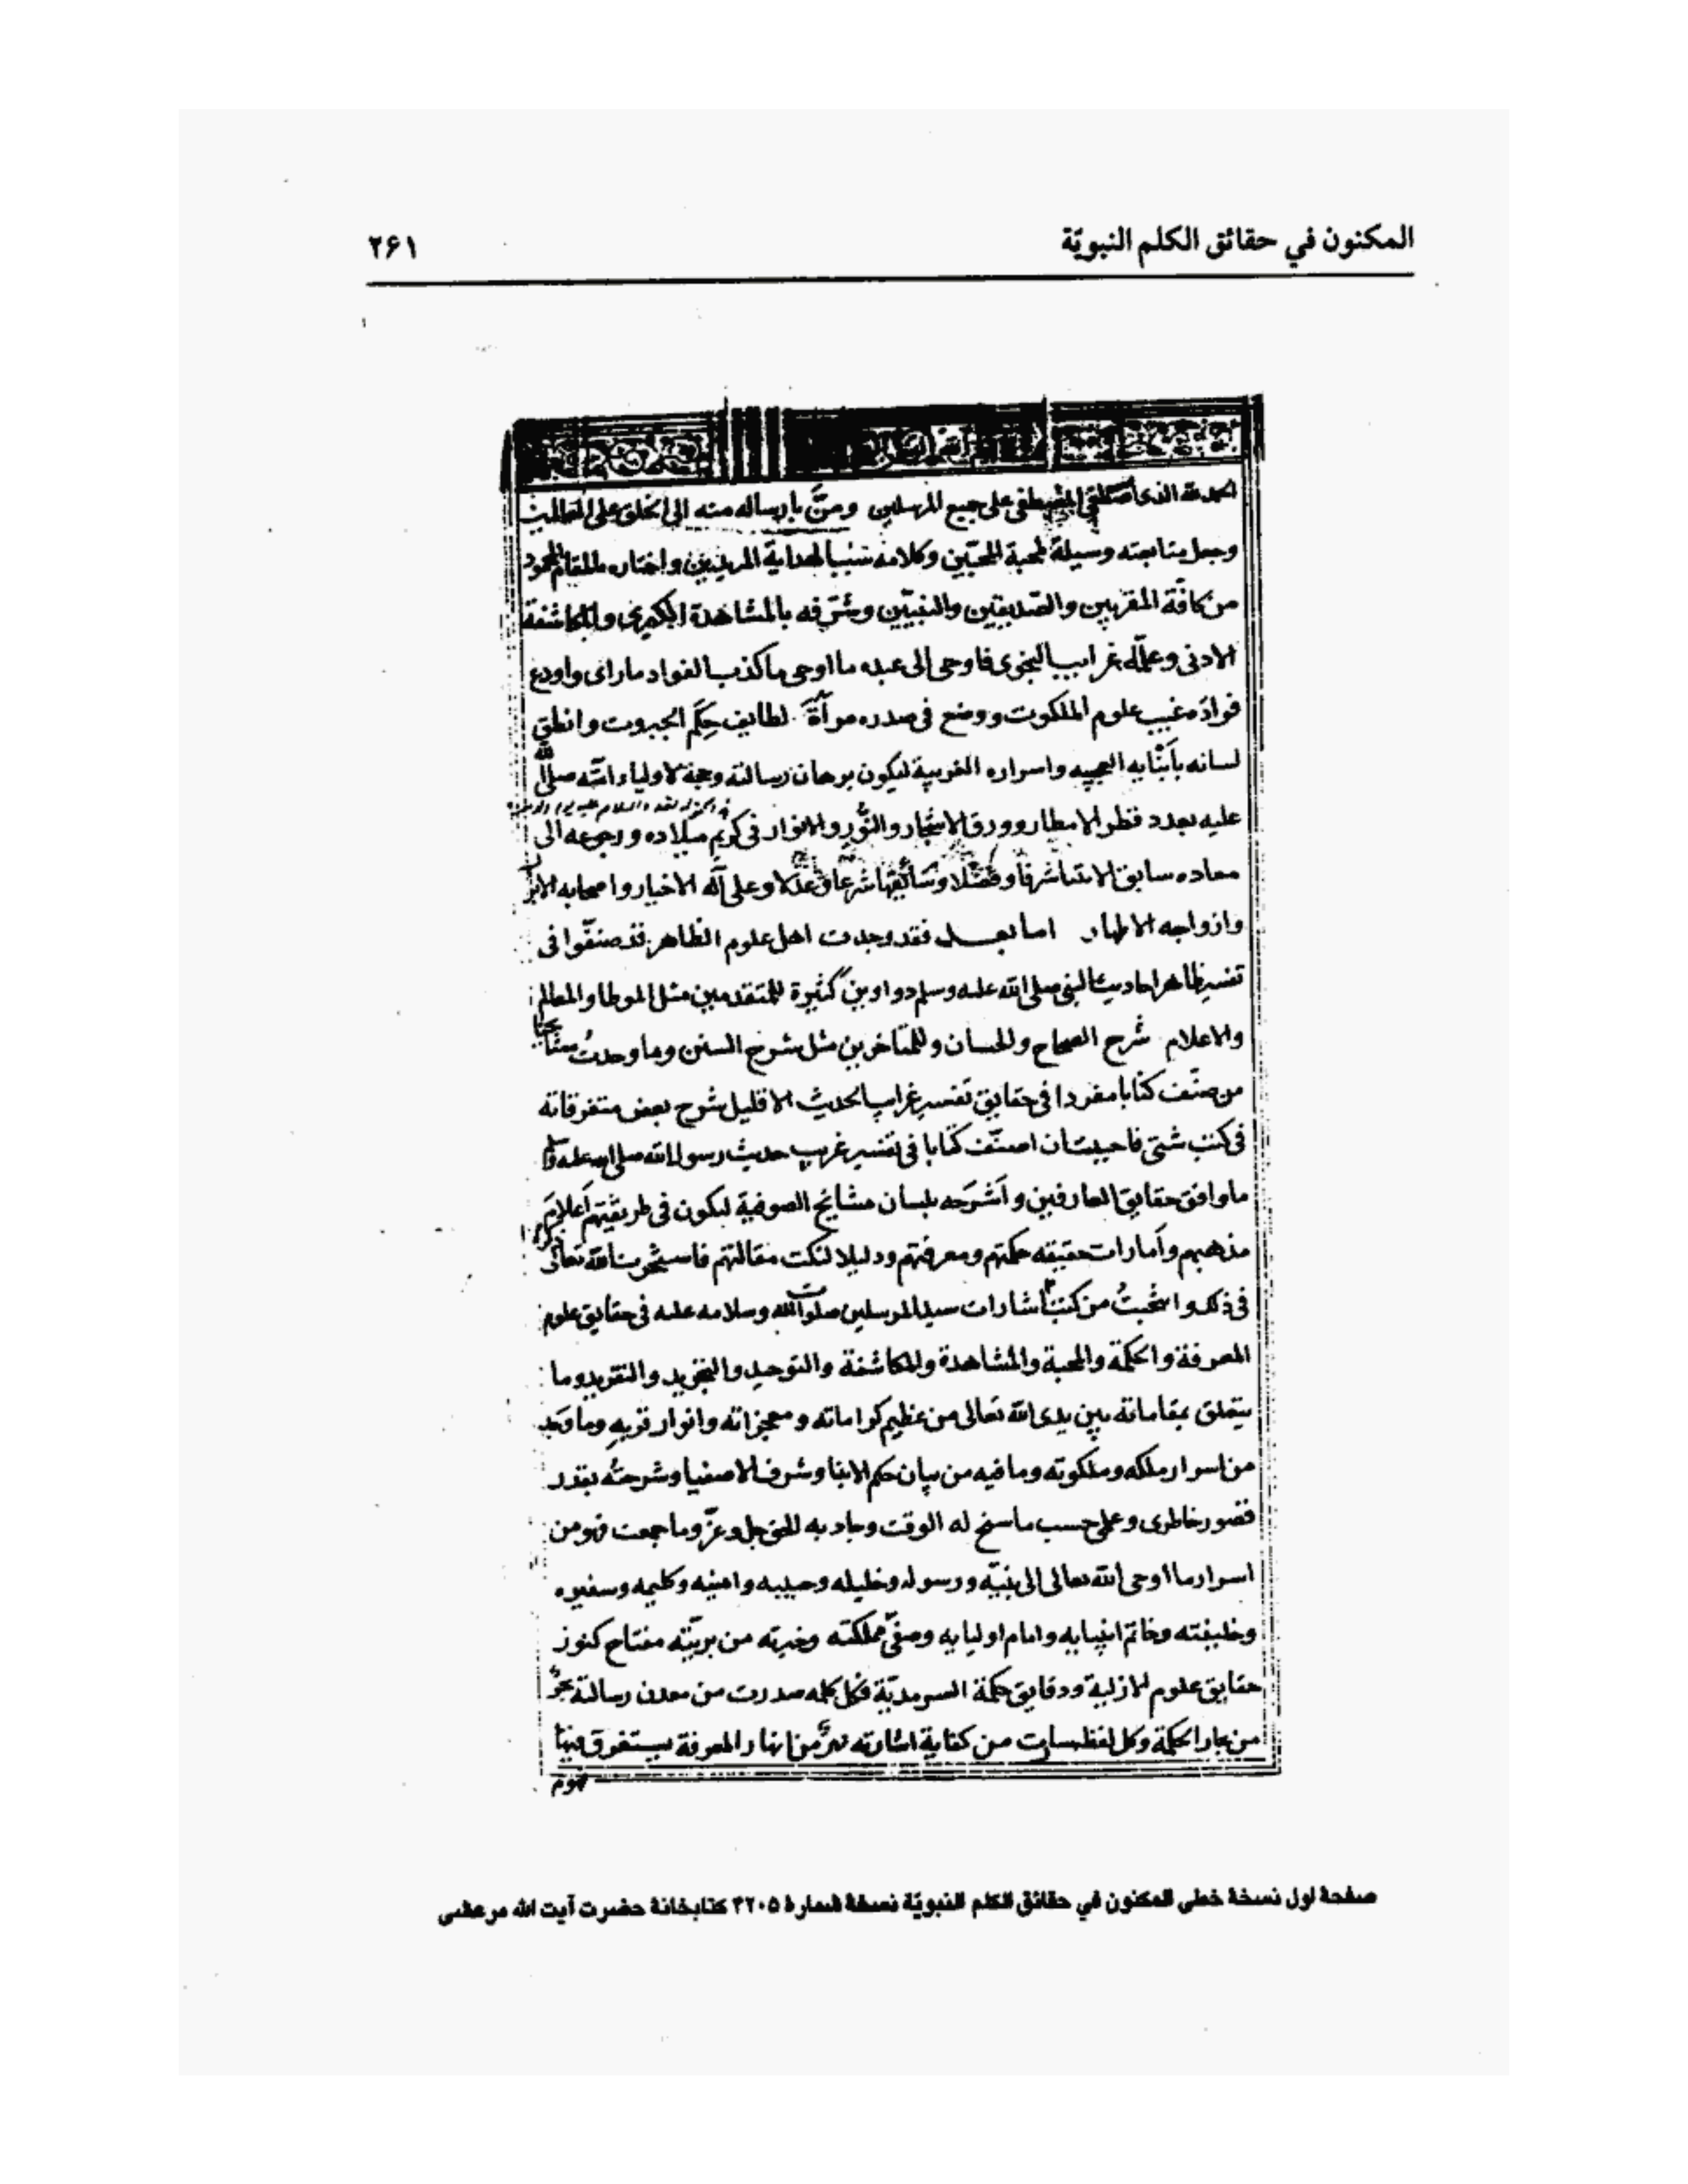 المكنون في حقائق الكلم النبويّة
۲۶۱
الحمد لله الذى اصطفى المصطفى على جميع المرسلين ومنَّ بارساله منه الى الخلق على
وجعل متابعته وسيلة لمحبة المحبّين وكلامه سببا لهداية المريدين واختاره بالمقام المحمود
من كافّة المقربين والصّديقين والنبيّين وشرّفه بالمشاهدة الكبرى والمكاشفة
الادنى وعلّمه غرايب النجوى فاوحى الى عبده ما اوحى ما كذب الفواد ما راى واودع
فواده غيب علوم الملكوت ووضع فى صدره مرآة لطايف حِكَم الجبروت وانطق
لسانه بأنبايه العجيبه واسراره الغريبة ليكون برهان رسالته وحجة لاولياء الله صلى الله
عليه بعدد قطر الامطار وورق الاشجار والنَّور والانوار فى كريم ميلاده ورجوعه الى
معاده سابق الانبيا شرفا وفضلا وسائقها شرعا وعدلا وعلى آله الاخيار واصحابه
وازواجه الاطهار اما بعد فقد وجدت اهل علوم الظاهر قد صنفّوا فى
تفسير ظاهر احاديث النبى صلى الله عليه وسلم دواوين كثيرة للمتقدمين مثل الموطا والمعالم
والاعلام شرح الصحاح والحسان وللمتاخرين مثل شرح السنن وما وجدتُ
من صنّف كتابا مفردا فى حقايق تفسير غرايب الحديث الا قليل شرح بعض متفرقاته
فى كتب شتى فاحببت ان اصنّف كتابا فى تفسير غريب حديث رسول الله صلى الله عليه وسلم
ما وافق حقايق العارفين وأشرحه بلسان مشايخ الصوفية ليكون فى طريقتهم أعلام
مذهبهم وأمارات حقيقه حكمتهم ومعرفتهم ودليلا لنكت مقالتهم فاستخرت الله تعالى
فى ذلك وانتخبتُ من كتب اشارات سيد المرسلين صلوات الله وسلامه عليه فى حقايق علوم
المعرفة والحكمة والمحبة والمشاهدة والمكاشفة والتوحيد والتجريد والتفريد وما
يتعلق بمقاماته بين يدى الله تعالى من عظيم كراماته ومعجزاته وانوار قربهِ وما وجد
من اسرار ملكه وملكوته وما فيه من بيان حكم الانبيا وشرف الاصفيا وشرحتُه بقدر
قصور خاطرى وعلى حسب ما سنح له الوقت وجاد به الحق جل وعزّ وما جمعت فهو من
اسرار ما اوحى الله تعالى الى نبيّه ورسوله وخليله وحبيبه وامينه وكليمه وسفيره
وخليفته وخاتم انبيايه وامام اوليايه وصفىّ مملكته وخيرته من بريّته مفتاح كنوز
حقايق علوم الازلية ودقايق حكمة السرمديّة فكل كلمه صدرت من معدن رسالته بحرٌ
من بحار الحكمة وكل لفظ من كفاية اشارته نهرٌ من انهار المعرفة يستغرق فيها
صفحۀ اول نسخۀ خطی المكنون في حقائق الكلم النبويّة نسخۀ شمارۀ ۴۲۰۵ كتابخانۀ حضرت آيت الله مرعشی